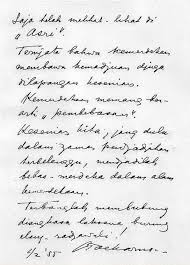 Saja telah melihat-lihat di
"Asri".
Ternjata bahwa kemerdekaan
membawa kemadjuan djuga
dilapangan kesenian.
Kemerdekaan memang ber-
arti "pembebasan".
Kesenian kita, jang dulu
dalam zaman pendjadjahan
terbelenggu, mendjadilah
bebas-merdeka dalam alam
kemerdekaan.
Terbanglah membubung
diangkasa laksana burung
elang-radjawali!
Soekarno